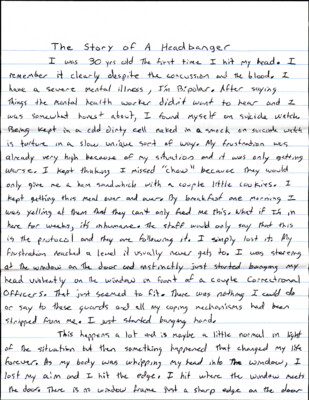 The Story of A Headbanger
I was 30 yrs old the first time I hit my head. I
remember it clearly despite the concussion and the blood. I
have a severe mental illness, I'm Bipolar. After saying
things the mental health worker didn't want to hear and I
was somewhat honest about, I found myself on suicide watch.
Being kept in a cold dirty cell naked in a smock on suicide watch
is torture in a slow unique sort of way. My frustration was
already very high because of my situation and it was only getting
worse. I kept thinking I missed "chow" because they would
only give me a ham sandwich with a couple little cookies. I
kept getting this meal over and over. By breakfast one morning I
was yelling at them that they can't only feed me this. What if I'm in
here for weeks, it's inhumane. The staff would only say that this
is the protocol and they are following it. I simply lost it. My
frustration reached a level it usually never gets to. I was staring
at the window on the door and instinctly just started banging my
head violently on the window in front of a couple Correctional
Officers. That just seemed to fit. There was nothing I could do
or say to these guards and all my coping mechanisms had been
stripped from me. I just started banging hard.
This happens a lot and is maybe a little normal in light
of the situation but then something happened that changed my life
forever. As my body was whipping my head into the window, I
lost my aim and I hit the edge. I hit where the window meets
the door. There is no window frame just a sharp edge on the door